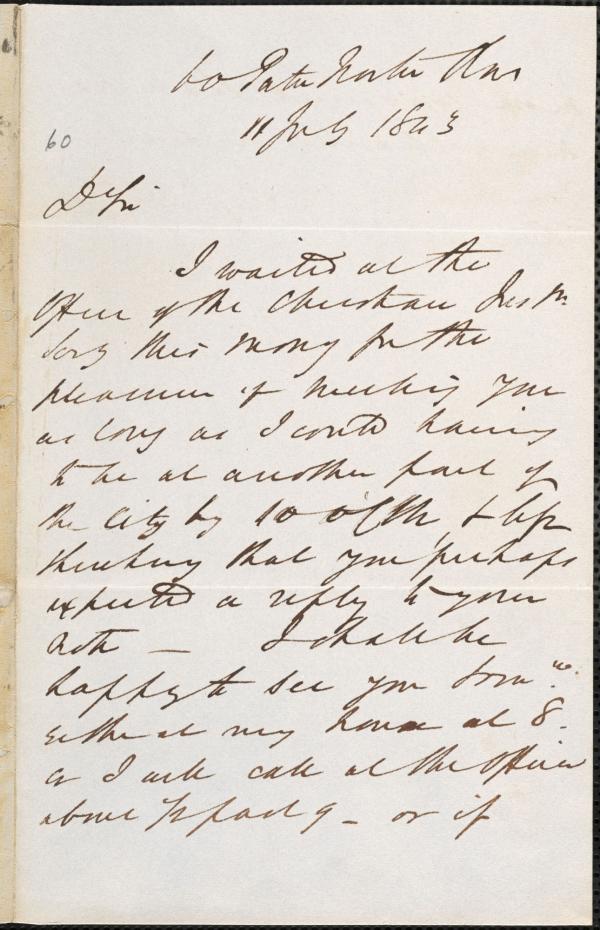 60 Pater Noster Row
11 July 1843
60
Dr Sir
I waited at the
Office of the Christian
this morng for the
pleasure of meeting you
as long as I could having
to be at another part of
the City by 10 oClk, & left
thinking that you perhaps
expected a reply to your
note — I shall be
happy to see you
either at my house at 8 -
or I will call at the Office
above past 9 — or if